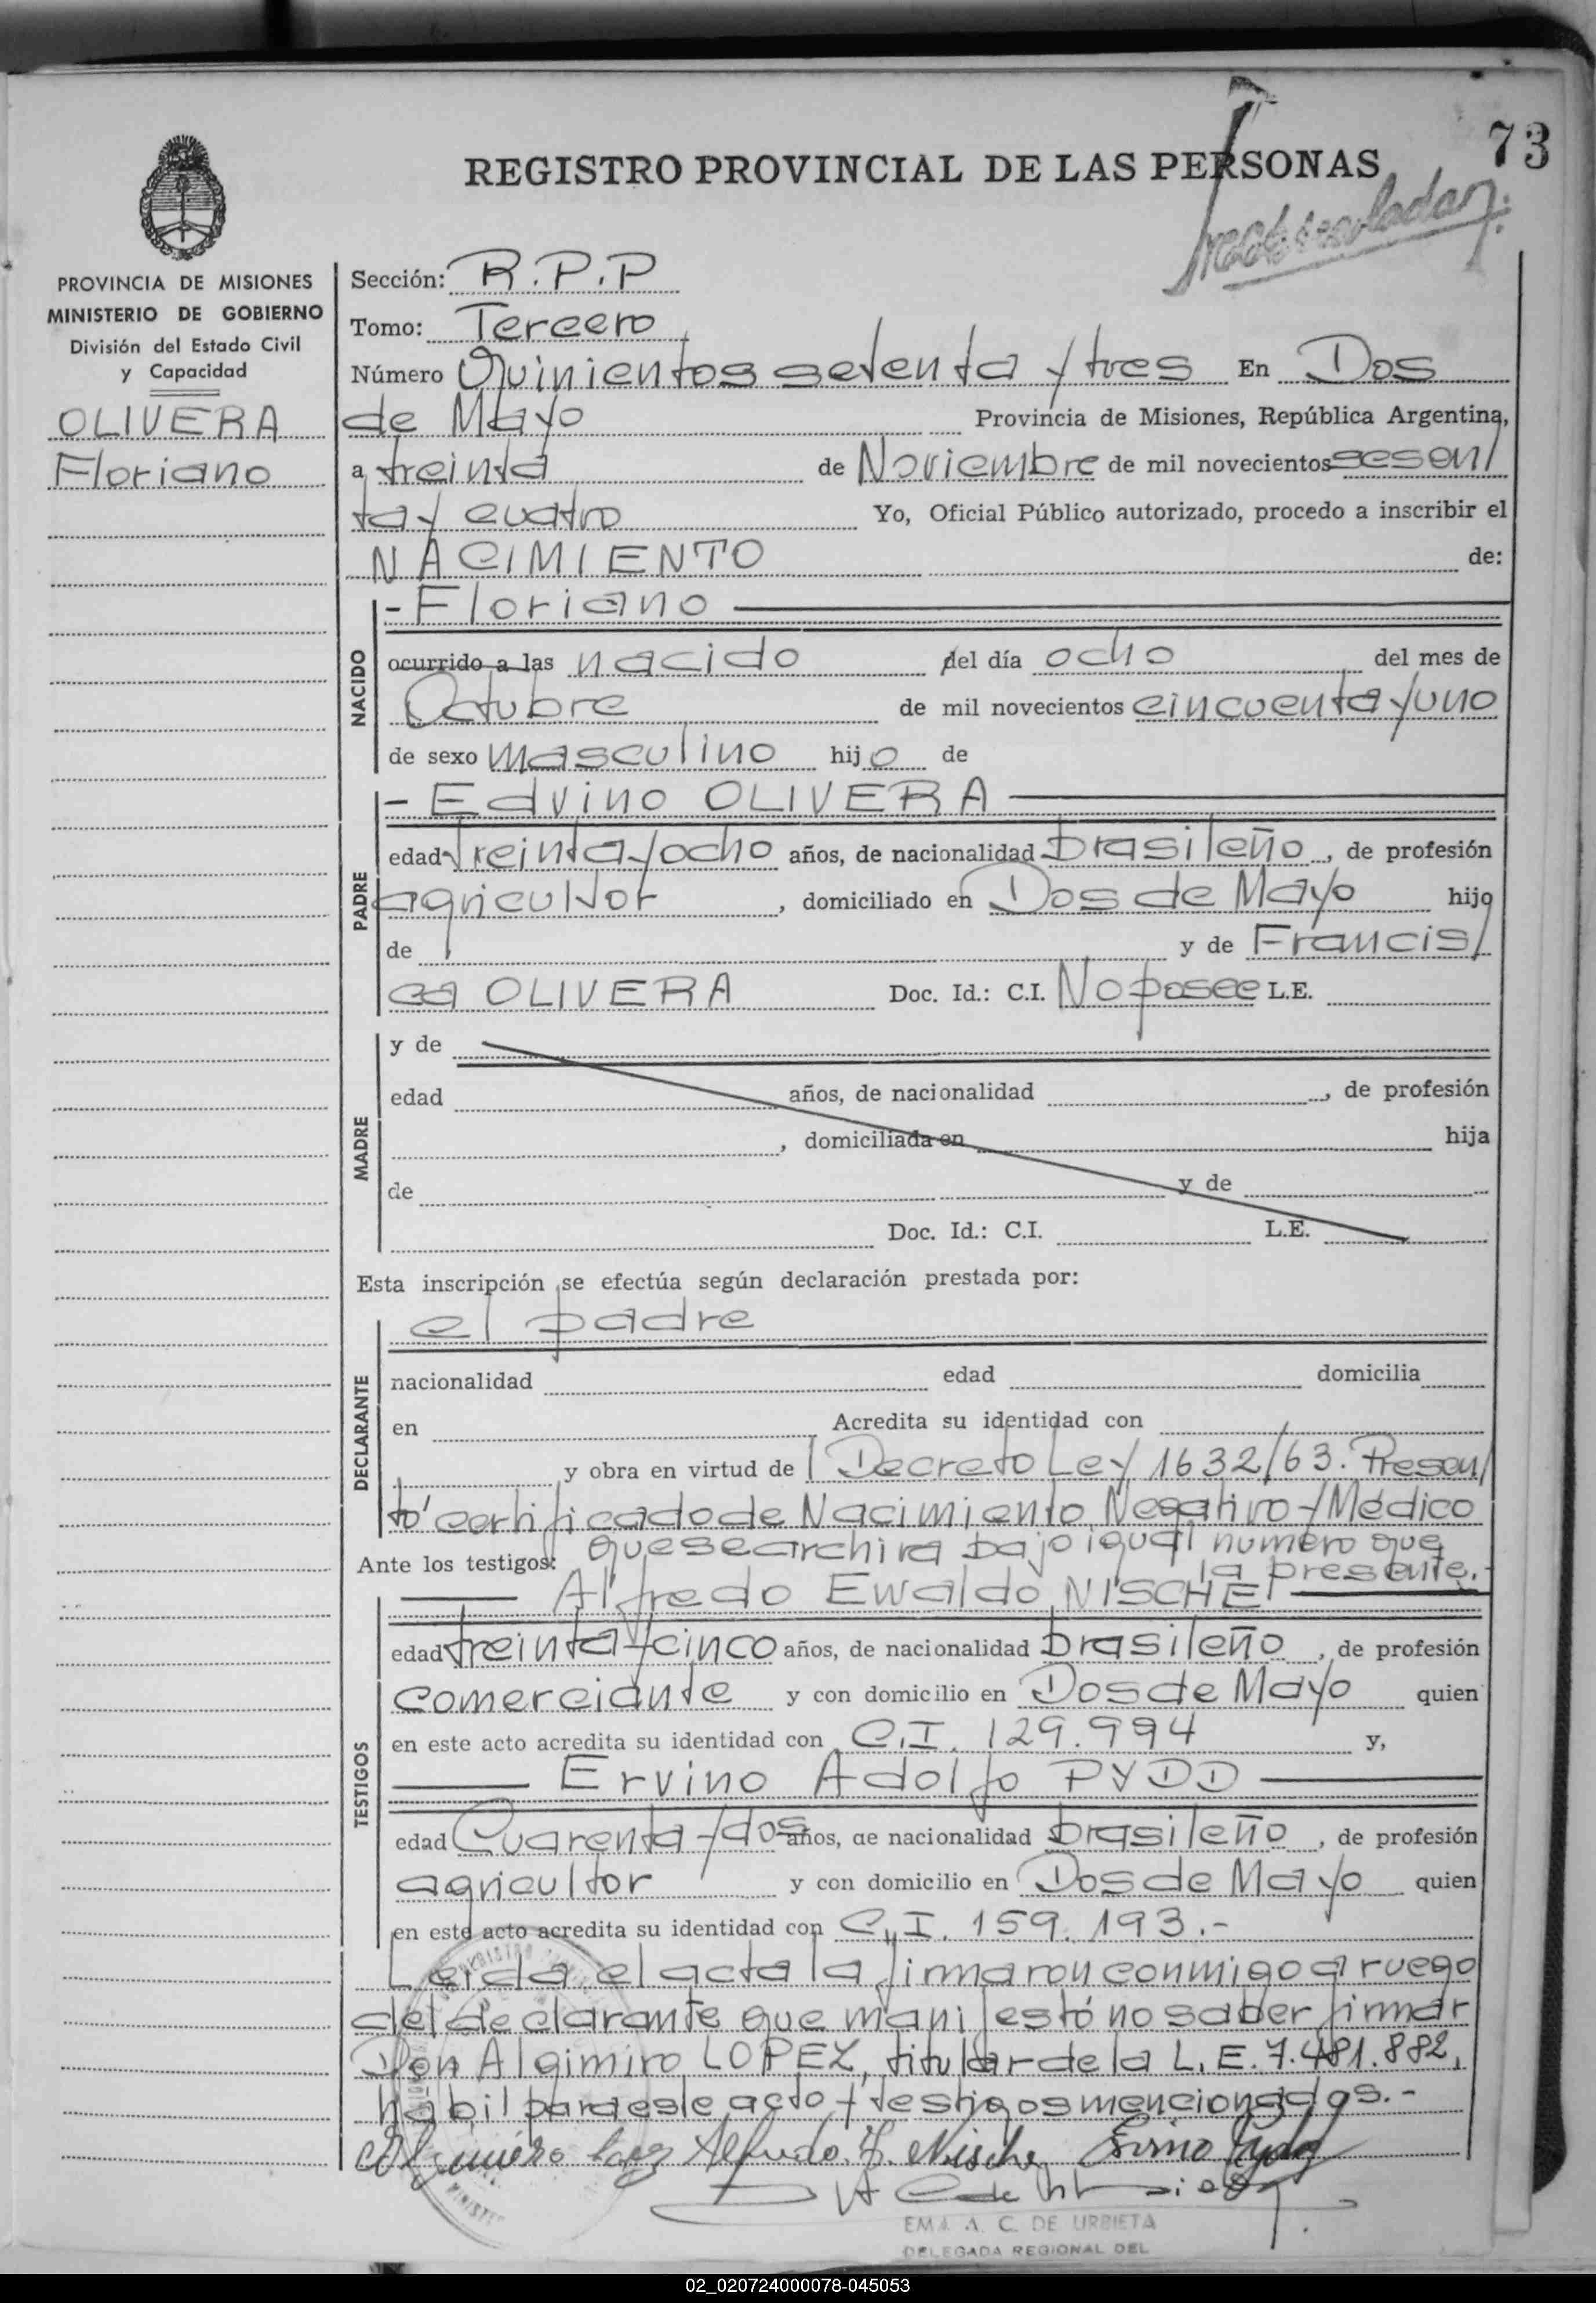 73
REGISTRO PROVINCIAL DE LAS PERSONAS
PROVINCIA DE MISIONES
MINISTERIO DE GOBIERNO
División del Estado Civil
y Capacidad
OLIVERA
Floriano
Sección: R.P.P
Tomo: Tercero
Número Quinientos setenta y tres En Dos
de Mayo Provincia de Misiones, República Argentina,
a treinta de Noviembre de mil novecientos sesen/
ta y cuatro Yo, Oficial Público autorizado, procedo a inscribir el
NACIMIENTO de:
NACIDO
- Floriano
ocurrido a las nacido del día ocho del mes de
Octubre de mil novecientos cincuenta y uno
de sexo masculino hijo de
PADRE
- Edvino OLIVERA
edad treinta y ocho años, de nacionalidad brasileño, de profesión
agricultor, domiciliado en Dos de Mayo hijo
de y de Francis/
ca OLIVERA Doc. Id.: C.I. No posee L.E.
MADRE
y de
edad años, de nacionalidad , de profesión
, domiciliada en hija
de y de
Doc. Id.: C.I. L.E.
Esta inscripción se efectúa según declaración prestada por:
DECLARANTE
el padre
nacionalidad edad domicilia
en Acredita su identidad con
y obra en virtud de Decreto Ley 1632/63. Presen/
tó certificado de Nacimiento Negativo y Médico
que se archiva bajo igual numero que
Ante los testigos: la presente.-
TESTIGOS
Alfredo Ewaldo NISCHE
edad treinta y cinco años, de nacionalidad brasileño, de profesión
comerciante y con domicilio en Dos de Mayo quien
en este acto acredita su identidad con C.I. 129.994 y,
Ervino Adolfo PYDD
edad Cuarenta y dos años, de nacionalidad brasileño, de profesión
agricultor y con domicilio en Dos de Mayo quien
en este acto acredita su identidad con C.I. 159.193.-
Leida el acta la firmaron conmigo a ruego
del declarante que manifestó no saber firmar
Don Algimiro LOPEZ, titular de la L.E. 7.481.882,
habil para este acto y testigos mencionados.-
Alfredo E. Nische
EMA A. C. DE URBIETA
DELEGADA REGIONAL DEL
02_020724000078-045053